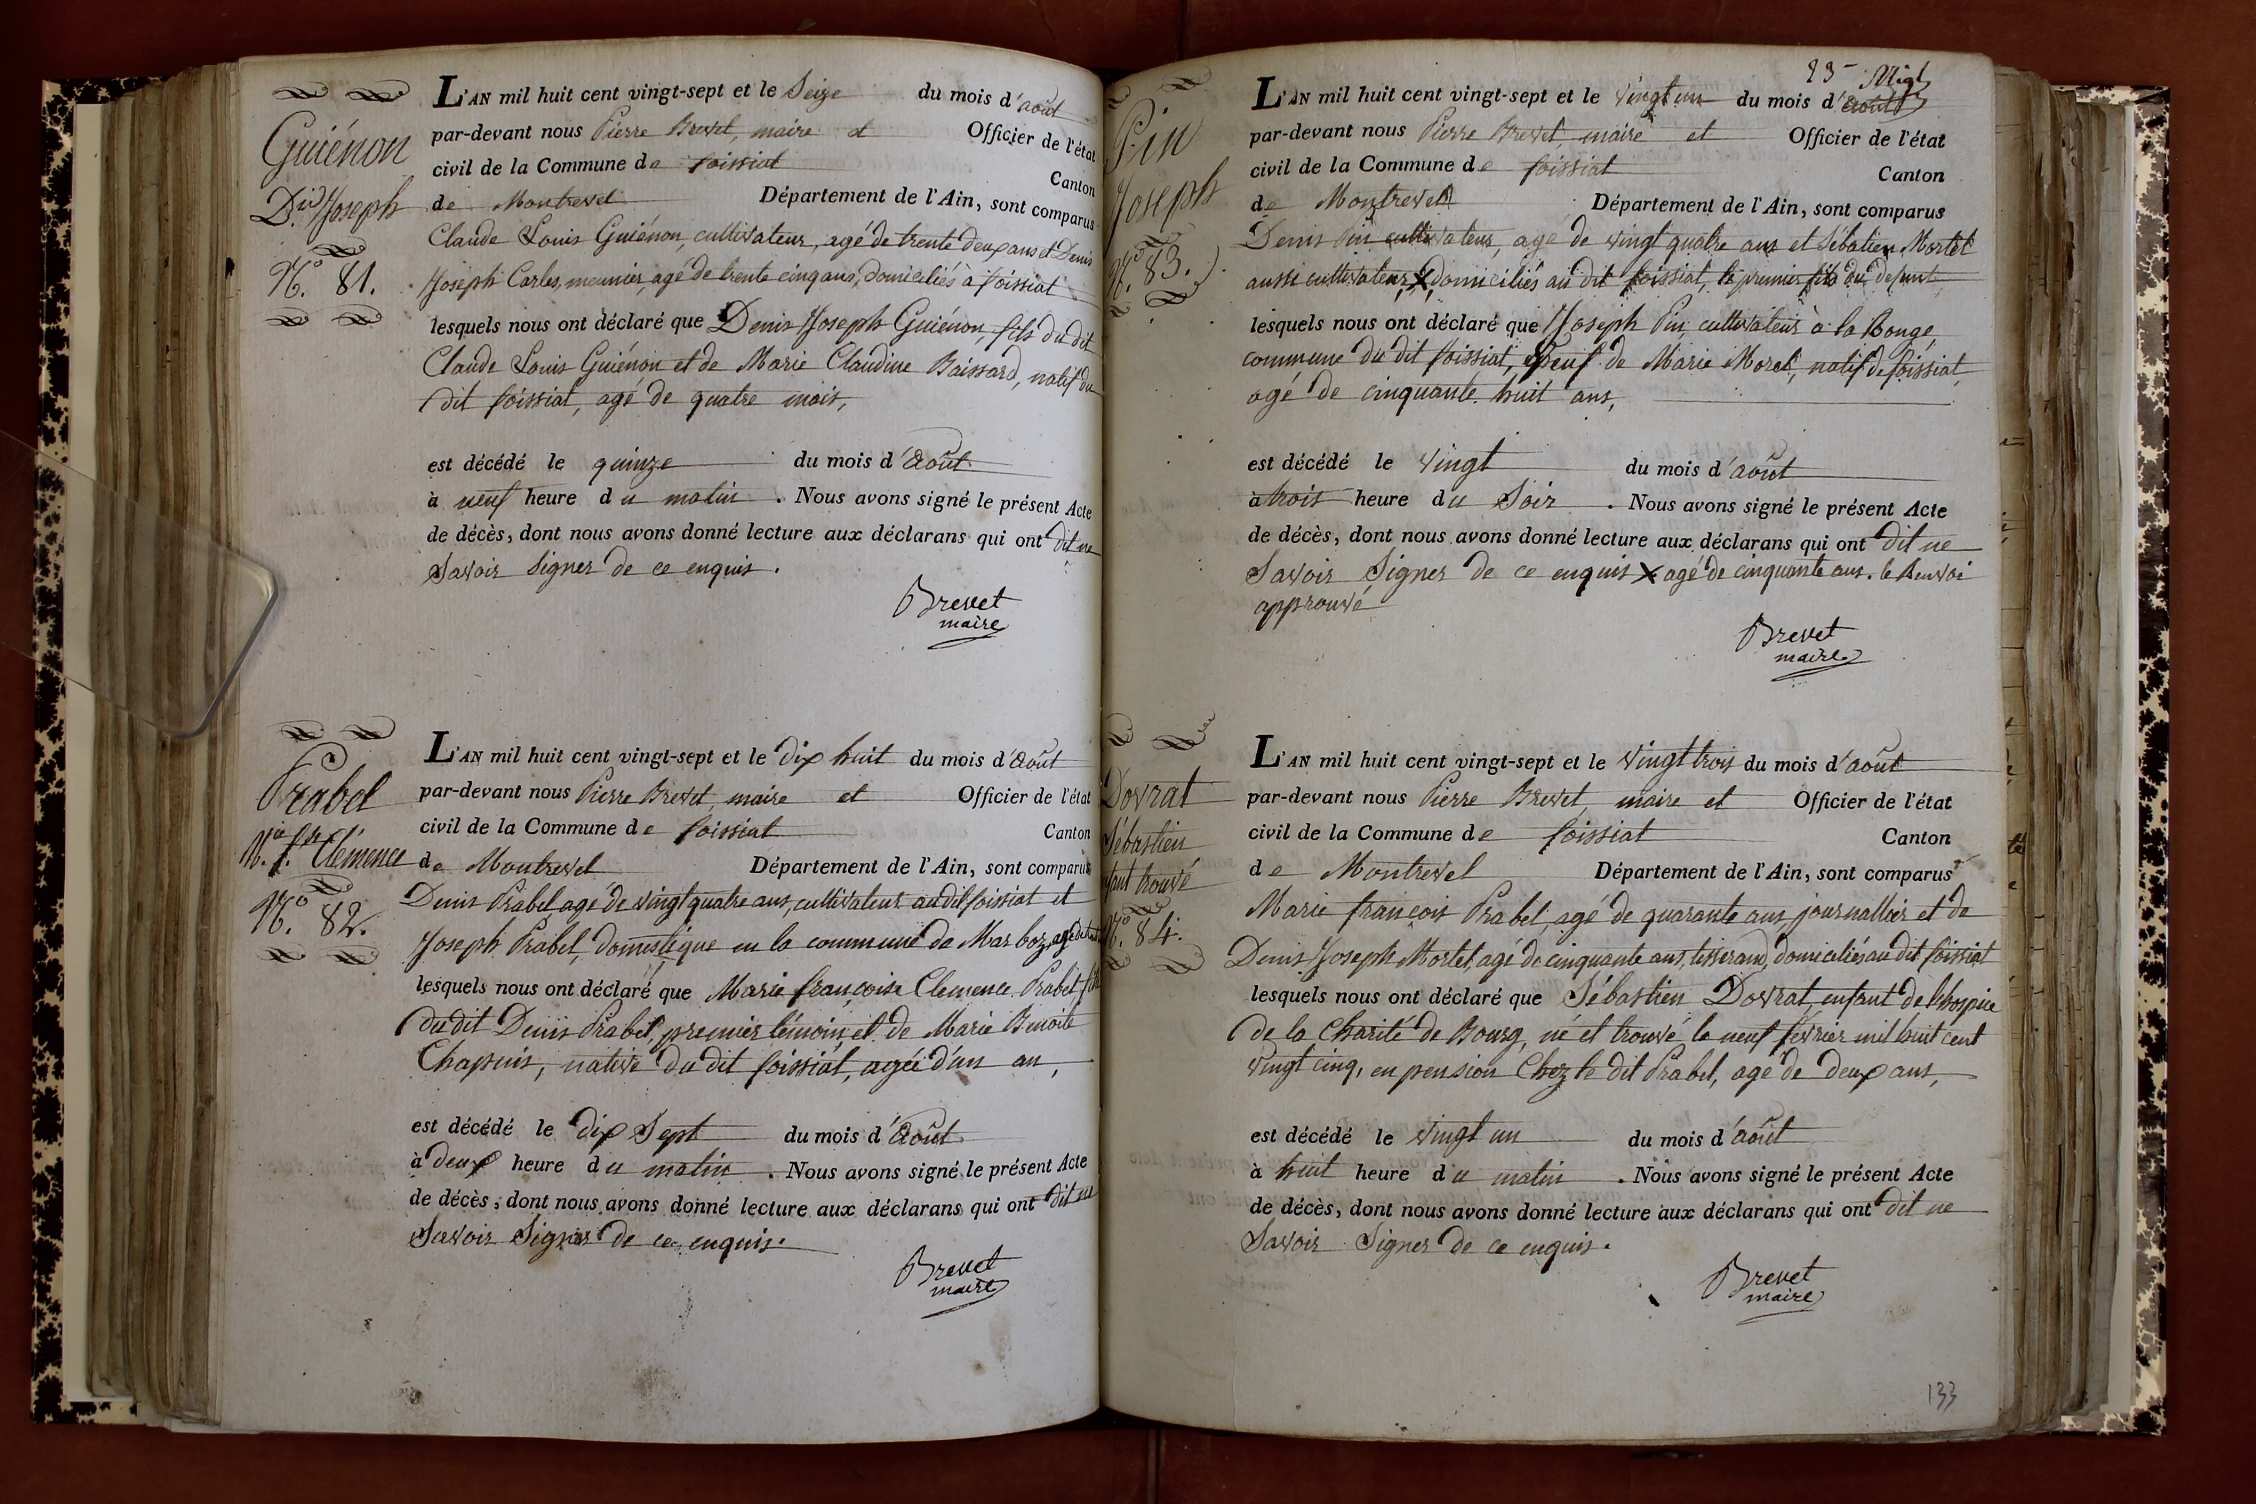 Guiénon
Dis Joseph
N.º 81.
L'AN mil huit cent vingt-sept et le Seize du mois d'août
par-devant nous Pierre Brevet, maire et Officier de l'état
civil de la Commune de foissiat Canton
de Montrevel Département de l'Ain, sont comparus
Claude Louis Guiénon, cultivateur, agé de trente deux ans et Denis
Joseph Carles, meunier, agé de trente cinq ans, domiciliés à foissiat
lesquels nous ont déclaré que Denis Joseph Guiénon, fils du dit
Claude Louis Guiénon et de Marie Claudine Baissard, natif du
dit foissiat, agé de quatre mois,
est décédé le quinze du mois d'août
à neuf heure du matin. Nous avons signé le présent Acte
de décès, dont nous avons donné lecture aux déclarans qui ont dit ne
Savoir Signer de ce enquis.
Brevet
maire
Prabel
M.ie f.se Clémence
N.º 82.
L'AN mil huit cent vingt-sept et le dix huit du mois d'août
par-devant nous Pierre Brevet, maire et Officier de l'état
civil de la Commune de foissiat Canton
de Montrevel Département de l'Ain, sont comparus
Denis Prabel, agé de vingt quatre ans, cultivateur au dit foissiat et
Joseph Prabel, domestique en la commune de Marboz, agé de
lesquels nous ont déclaré que Marie françoise Clemence Prabel
du dit Denis Prabel, premier témoin, et de Marie Benoite
Chapuis, native du dit foissiat, agée d'un an,
est décédé le dix Sept du mois d'août
à deux heure du matin. Nous avons signé le présent Acte
de décès, dont nous avons donné lecture aux déclarans qui ont dit ne
Savoir Signer de ce enquis.
Brevet
maire
Pin
Joseph
N.º 83.
L'AN mil huit cent vingt-sept et le vingt un du mois d'août
par-devant nous Pierre Brevet, maire et Officier de l'état
civil de la Commune de foissiat Canton
de Montrevel Département de l'Ain, sont comparus
Denis Pin cultivateur, agé de vingt quatre ans et Sébatien Mortel
aussi cultivateur, X domiciliés au dit foissiat, le premier fils du defunt
lesquels nous ont déclaré que Joseph Pin, cultivateur à la Bouge,
commune du dit foissiat, veuf de Marie Morel, natif de foissiat,
agé de cinquante huit ans,
est décédé le vingt du mois d'août
à trois heure du Soir. Nous avons signé le présent Acte
de décès, dont nous avons donné lecture aux déclarans qui ont dit ne
Savoir Signer de ce enquis X agé de cinquante ans. le Renvoi
approuvé
Brevet
maire
Dovrat
Sébastien
fant trouvé
N.º 84.
L'AN mil huit cent vingt-sept et le vingt trois du mois d'août
par-devant nous Pierre Brevet, maire et Officier de l'état
civil de la Commune de foissiat Canton
de Montrevel Département de l'Ain, sont comparus
Marie françois Prabel, agé de quarante ans, journallier et de
Denis Joseph Mortel, agé de cinquante ans, tisserand, domiciliés au dit foissiat
lesquels nous ont déclaré que Sébastien Dovrat, enfant de l'hospice
de la Charité de Bourg, né et trouvé le neuf février mil huit cent
vingt cinq, en pension Chez le dit Prabel, agé de deux ans,
est décédé le vingt un du mois d'août
à huit heure du matin. Nous avons signé le présent Acte
de décès, dont nous avons donné lecture aux déclarans qui ont dit ne
Savoir Signer de ce enquis.
Brevet
maire
133